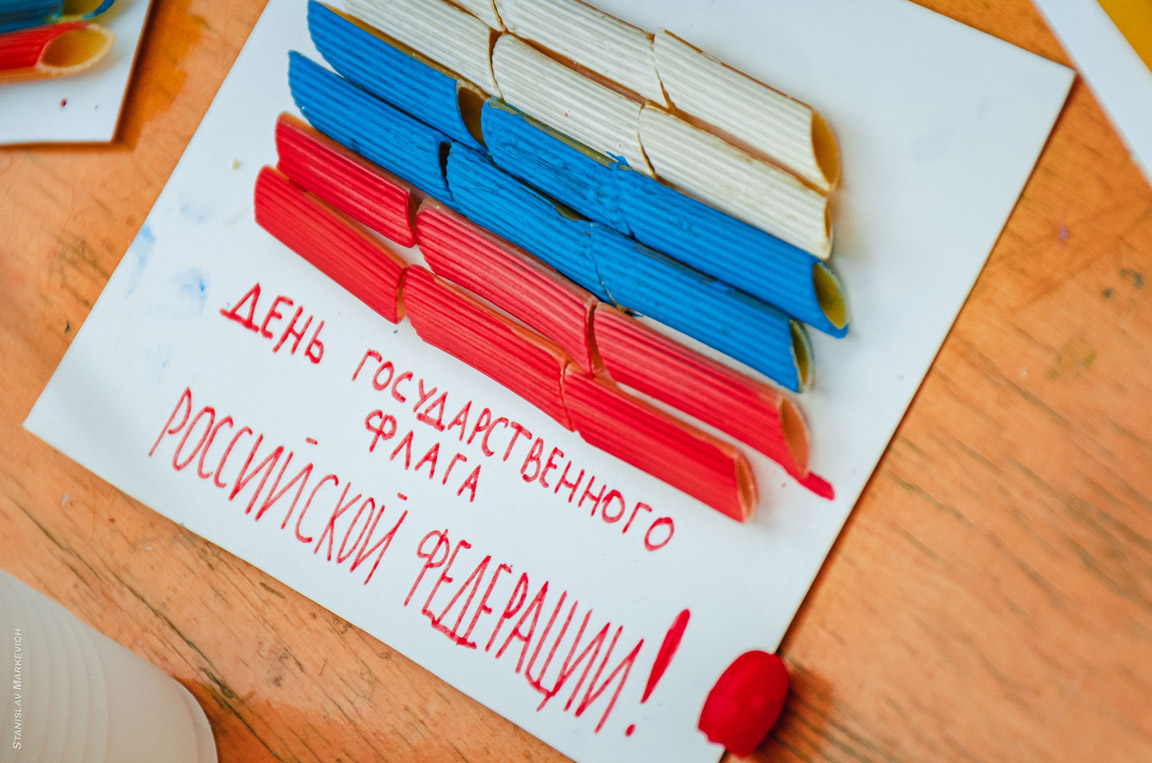 ДЕНЬ ГОСУДАРСТВЕННОГО
ФЛАГА
РОССИЙСКОЙ ФЕДЕРАЦИИ!
STANISLAV MARKEVICH